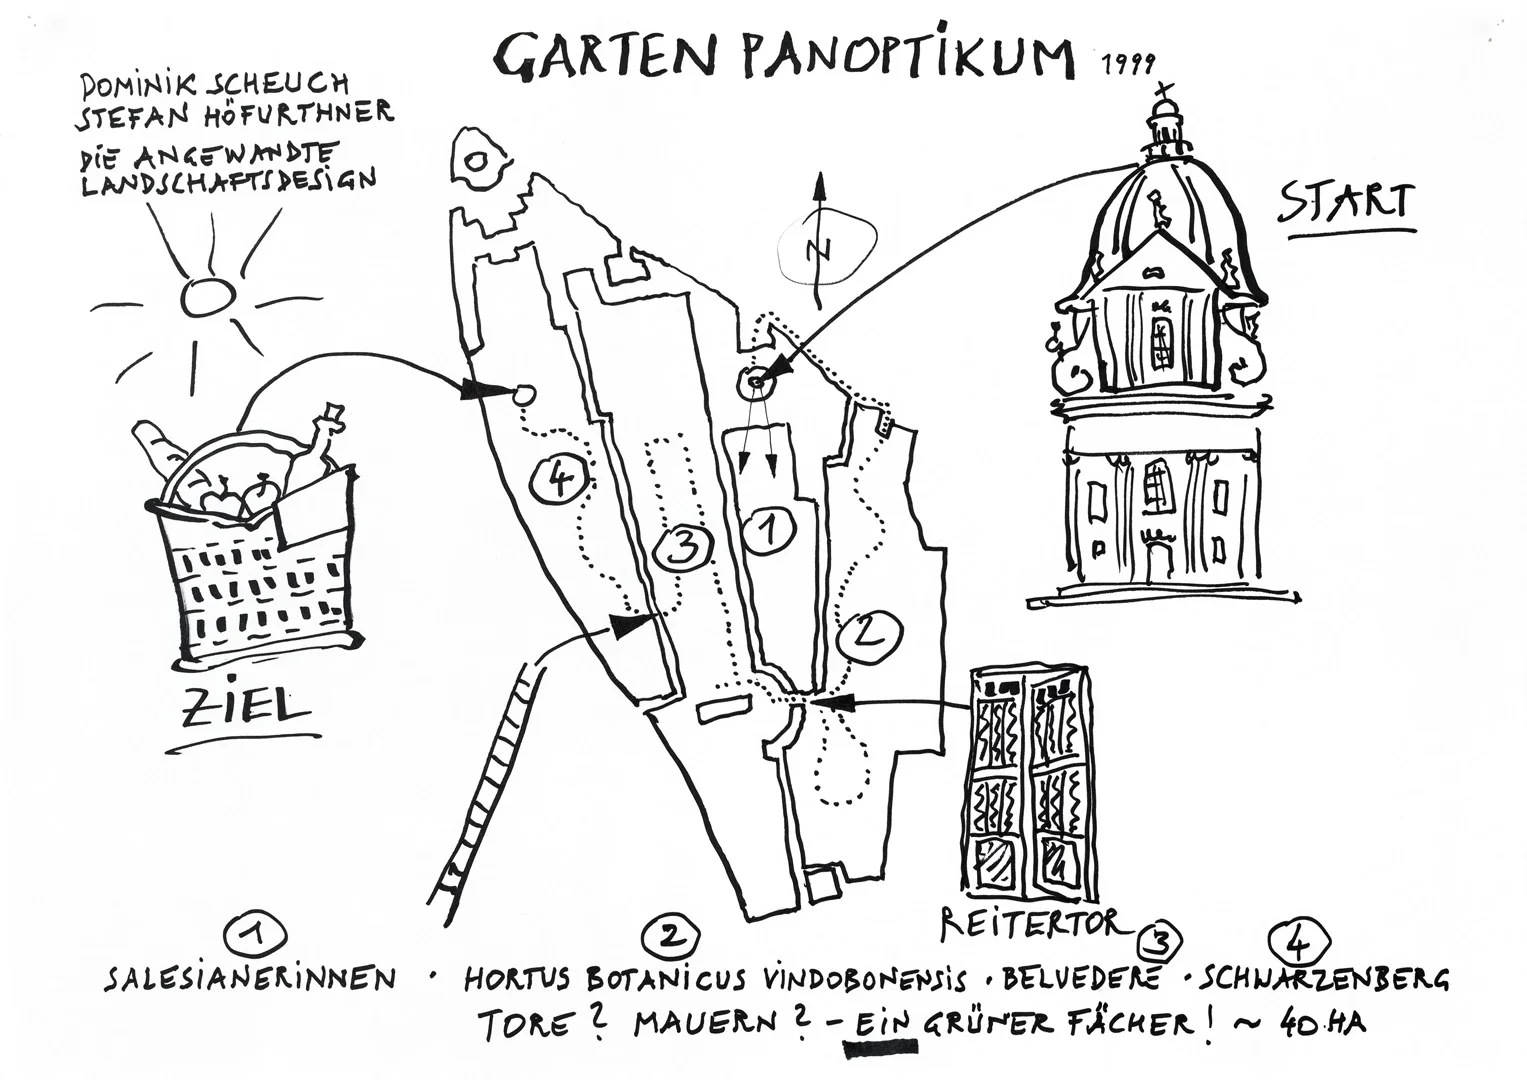 GARTEN PANOPTIKUM 1999
DOMINIK SCHEUCH
STEFAN HÖFURTHNER
DIE ANGEWANDTE
LANDSCHAFTSDESIGN
START
N
4
3
1
2
ZIEL
REITERTOR
1 2 3 4
SALESIANERINNEN · HORTUS BOTANICUS VINDOBONENSIS · BELVEDERE · SCHWARZENBERG
TORE? MAUERN? – EIN GRÜNER FÄCHER! ~ 40 HA